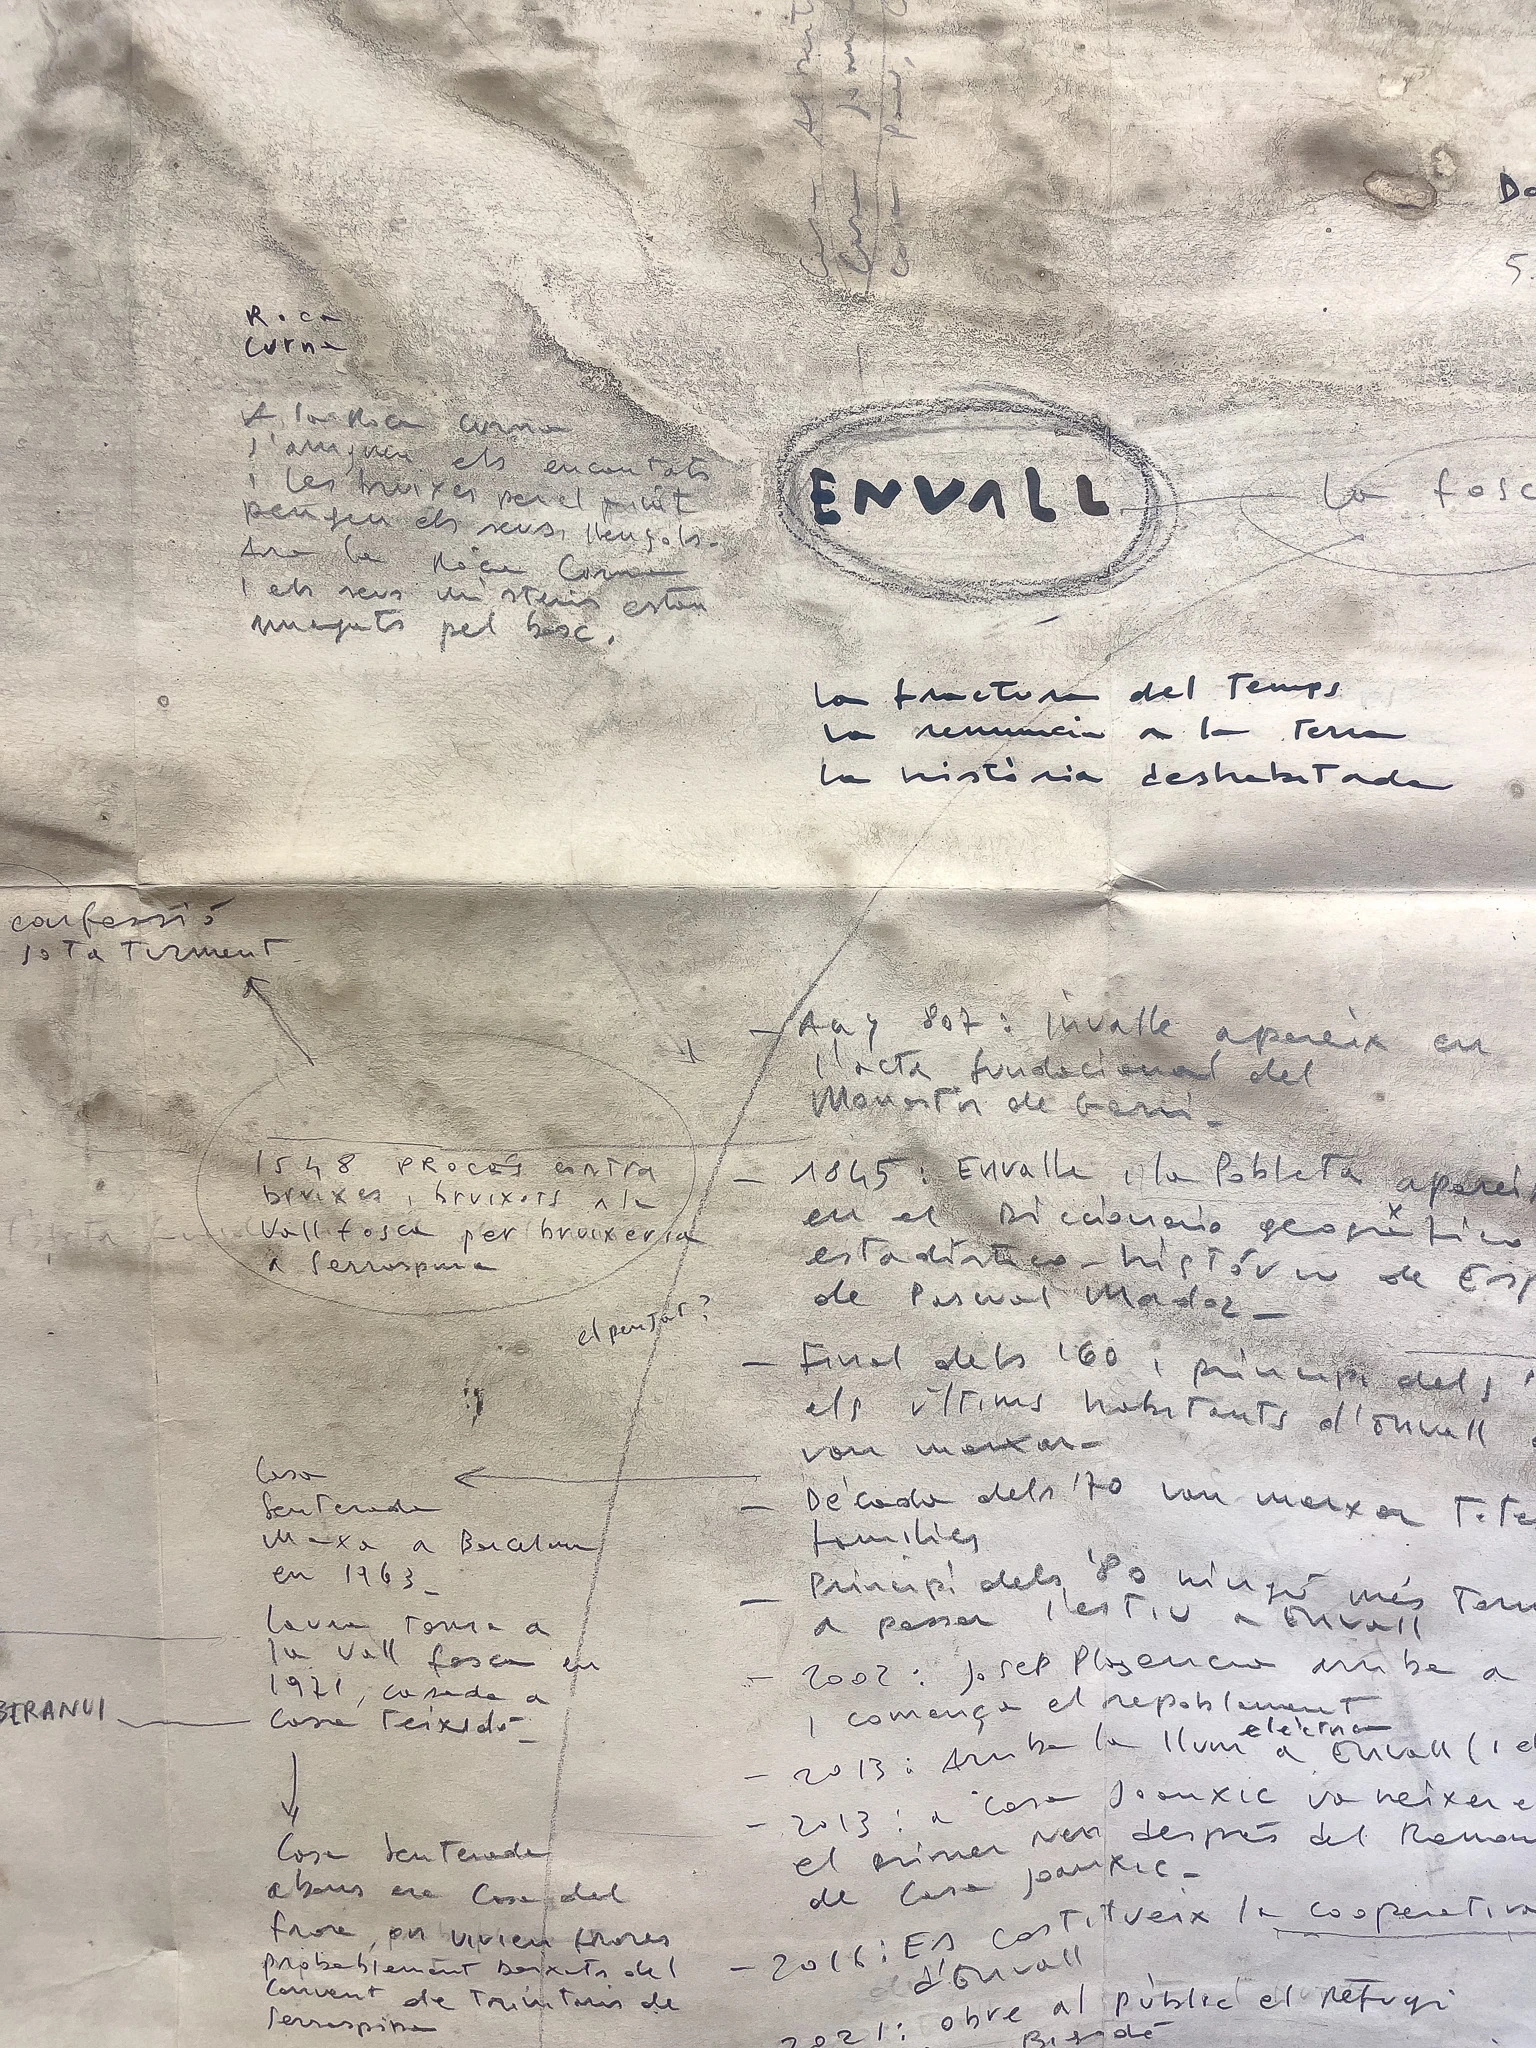 Roca
Curna
A la Roca Curna
els encantats
i les bruixes per el
pengen els seus llençols.
Ara la Roca Curna
i els seus misteris estan
pel bosc.
ENVALL
La fosc
la fractura del temps
la renuncia a la terra
la història deshabitada
confessió
sota turment
1548 procés contra
bruixes i bruixots a la
Vall fosca per bruixeria
a
el penjat?
- Any 807: invalle apareix en
l'acta fundacional del
Monestir de Gerri.
- 1845: Envalle i la Pobleta apareix
en el Diccionario geográfico
estadístico-histórico de Esp
de Pascual Madoz -
- Final dels '60 i principi dels '
els últims habitants d'Envall
van marxar -
- Década dels '70 van marxar totes
families
- Principi dels '80 ningú més torn
a passar l'estiu a Envall
- 2002: Josep Plasencia arriba a
i comença el repoblament
elèctrica
- 2013: Arriba la llum a Envall (i el
- 2013: a Casa Joanxic va néixer e
el primer nen després del Ramon
de Casa Joanxic -
- 2016: Es constitueix la cooperativa
d'Envall
2021: obre al públic el Refugi
Casa
Senterada
Marxa a Barcelona
en 1963 -
Laura torna a
la Vall fosca en
1971, casada a
Casa Teixidó -
BERANUI
Casa Senterada
abans era Casa del
frare, on vivien frares
probablement baixats del
Convent de Trinitaris de